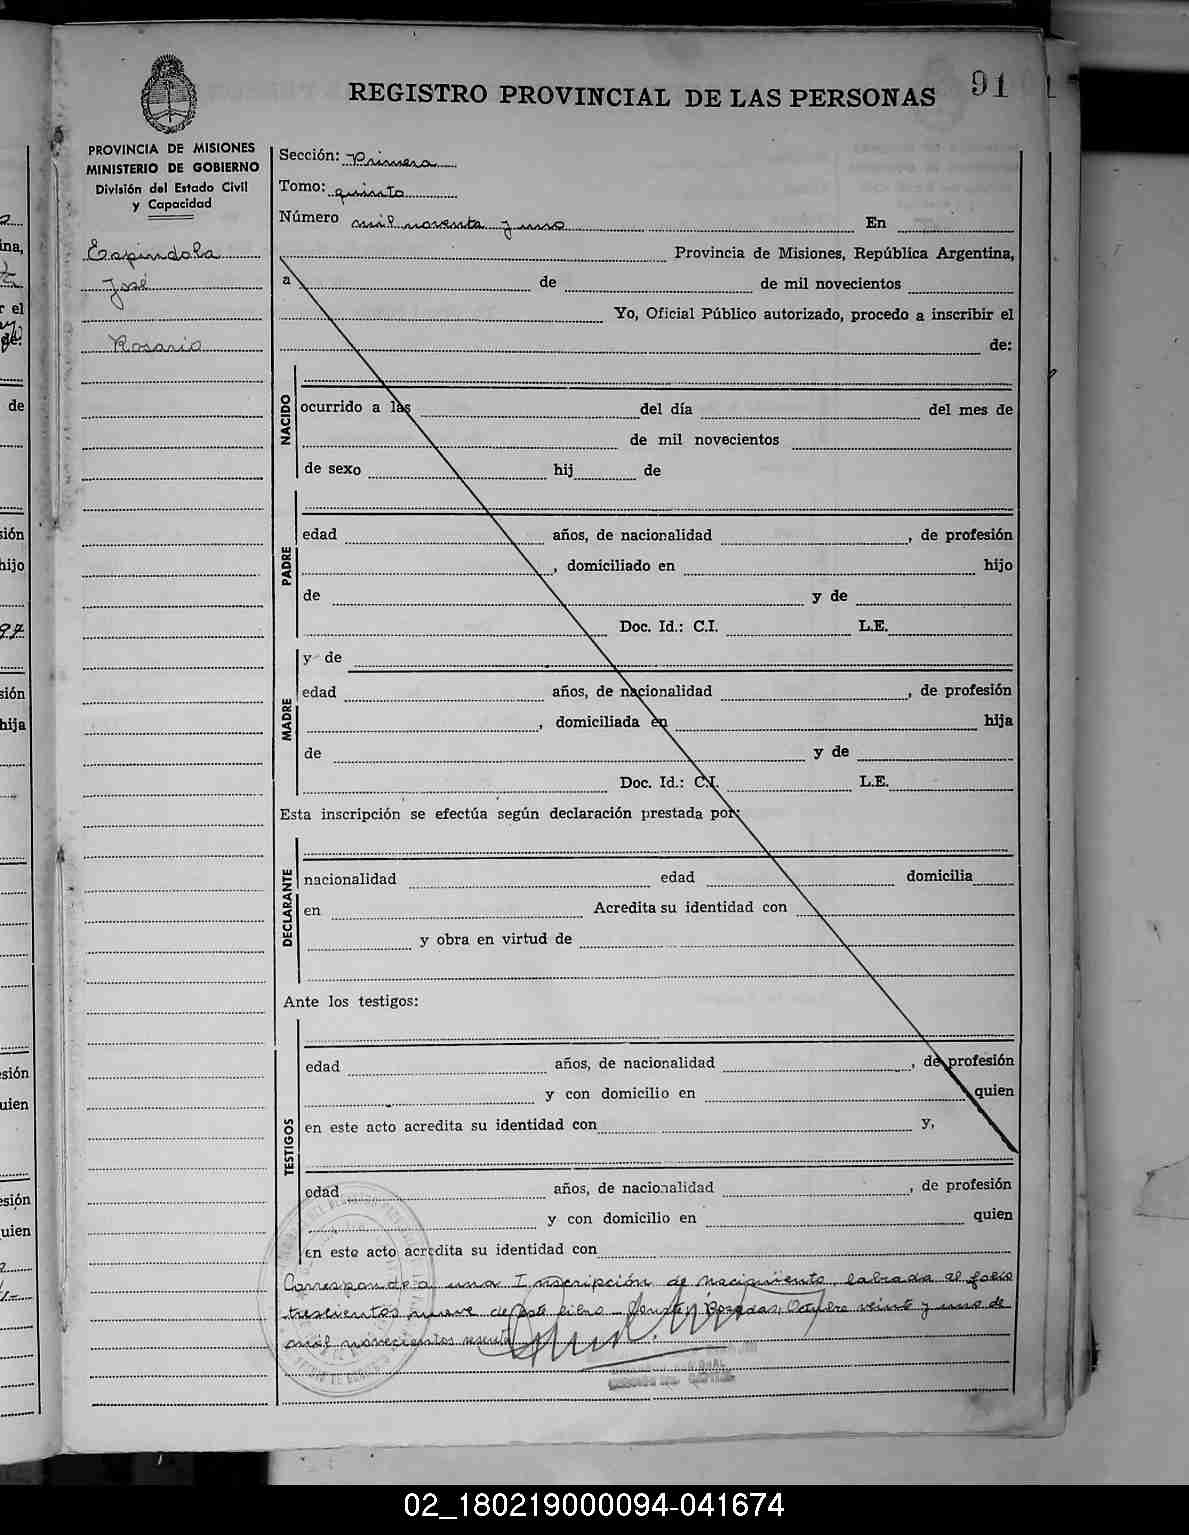 91
REGISTRO PROVINCIAL DE LAS PERSONAS
PROVINCIA DE MISIONES
MINISTERIO DE GOBIERNO
División del Estado Civil
y Capacidad
Espíndola
José
Rosario
Sección: Primera
Tomo: quinto
Número mil noventa y uno En
Provincia de Misiones, República Argentina,
a de de mil novecientos
Yo, Oficial Público autorizado, procedo a inscribir el
de:
NACIDO
ocurrido a las del día del mes de
de mil novecientos
de sexo hij de
PADRE
edad años, de nacionalidad , de profesión
, domiciliado en hijo
de y de
Doc. Id.: C.I. L.E.
MADRE
y de
edad años, de nacionalidad , de profesión
, domiciliada en hija
de y de
Doc. Id.: C.I. L.E.
Esta inscripción se efectúa según declaración prestada por:
DECLARANTE
nacionalidad edad domicilia
en Acredita su identidad con
y obra en virtud de
Ante los testigos:
TESTIGOS
edad años, de nacionalidad , de profesión
y con domicilio en quien
en este acto acredita su identidad con y,
edad años, de nacionalidad , de profesión
y con domicilio en quien
en este acto acredita su identidad con
Corresponde a una Inscripción de nacimiento, labrada al folio
trescientos nueve de este libro. Conste. Posadas, Octubre veinte y uno de
mil novecientos sesenta
02_180219000094-041674